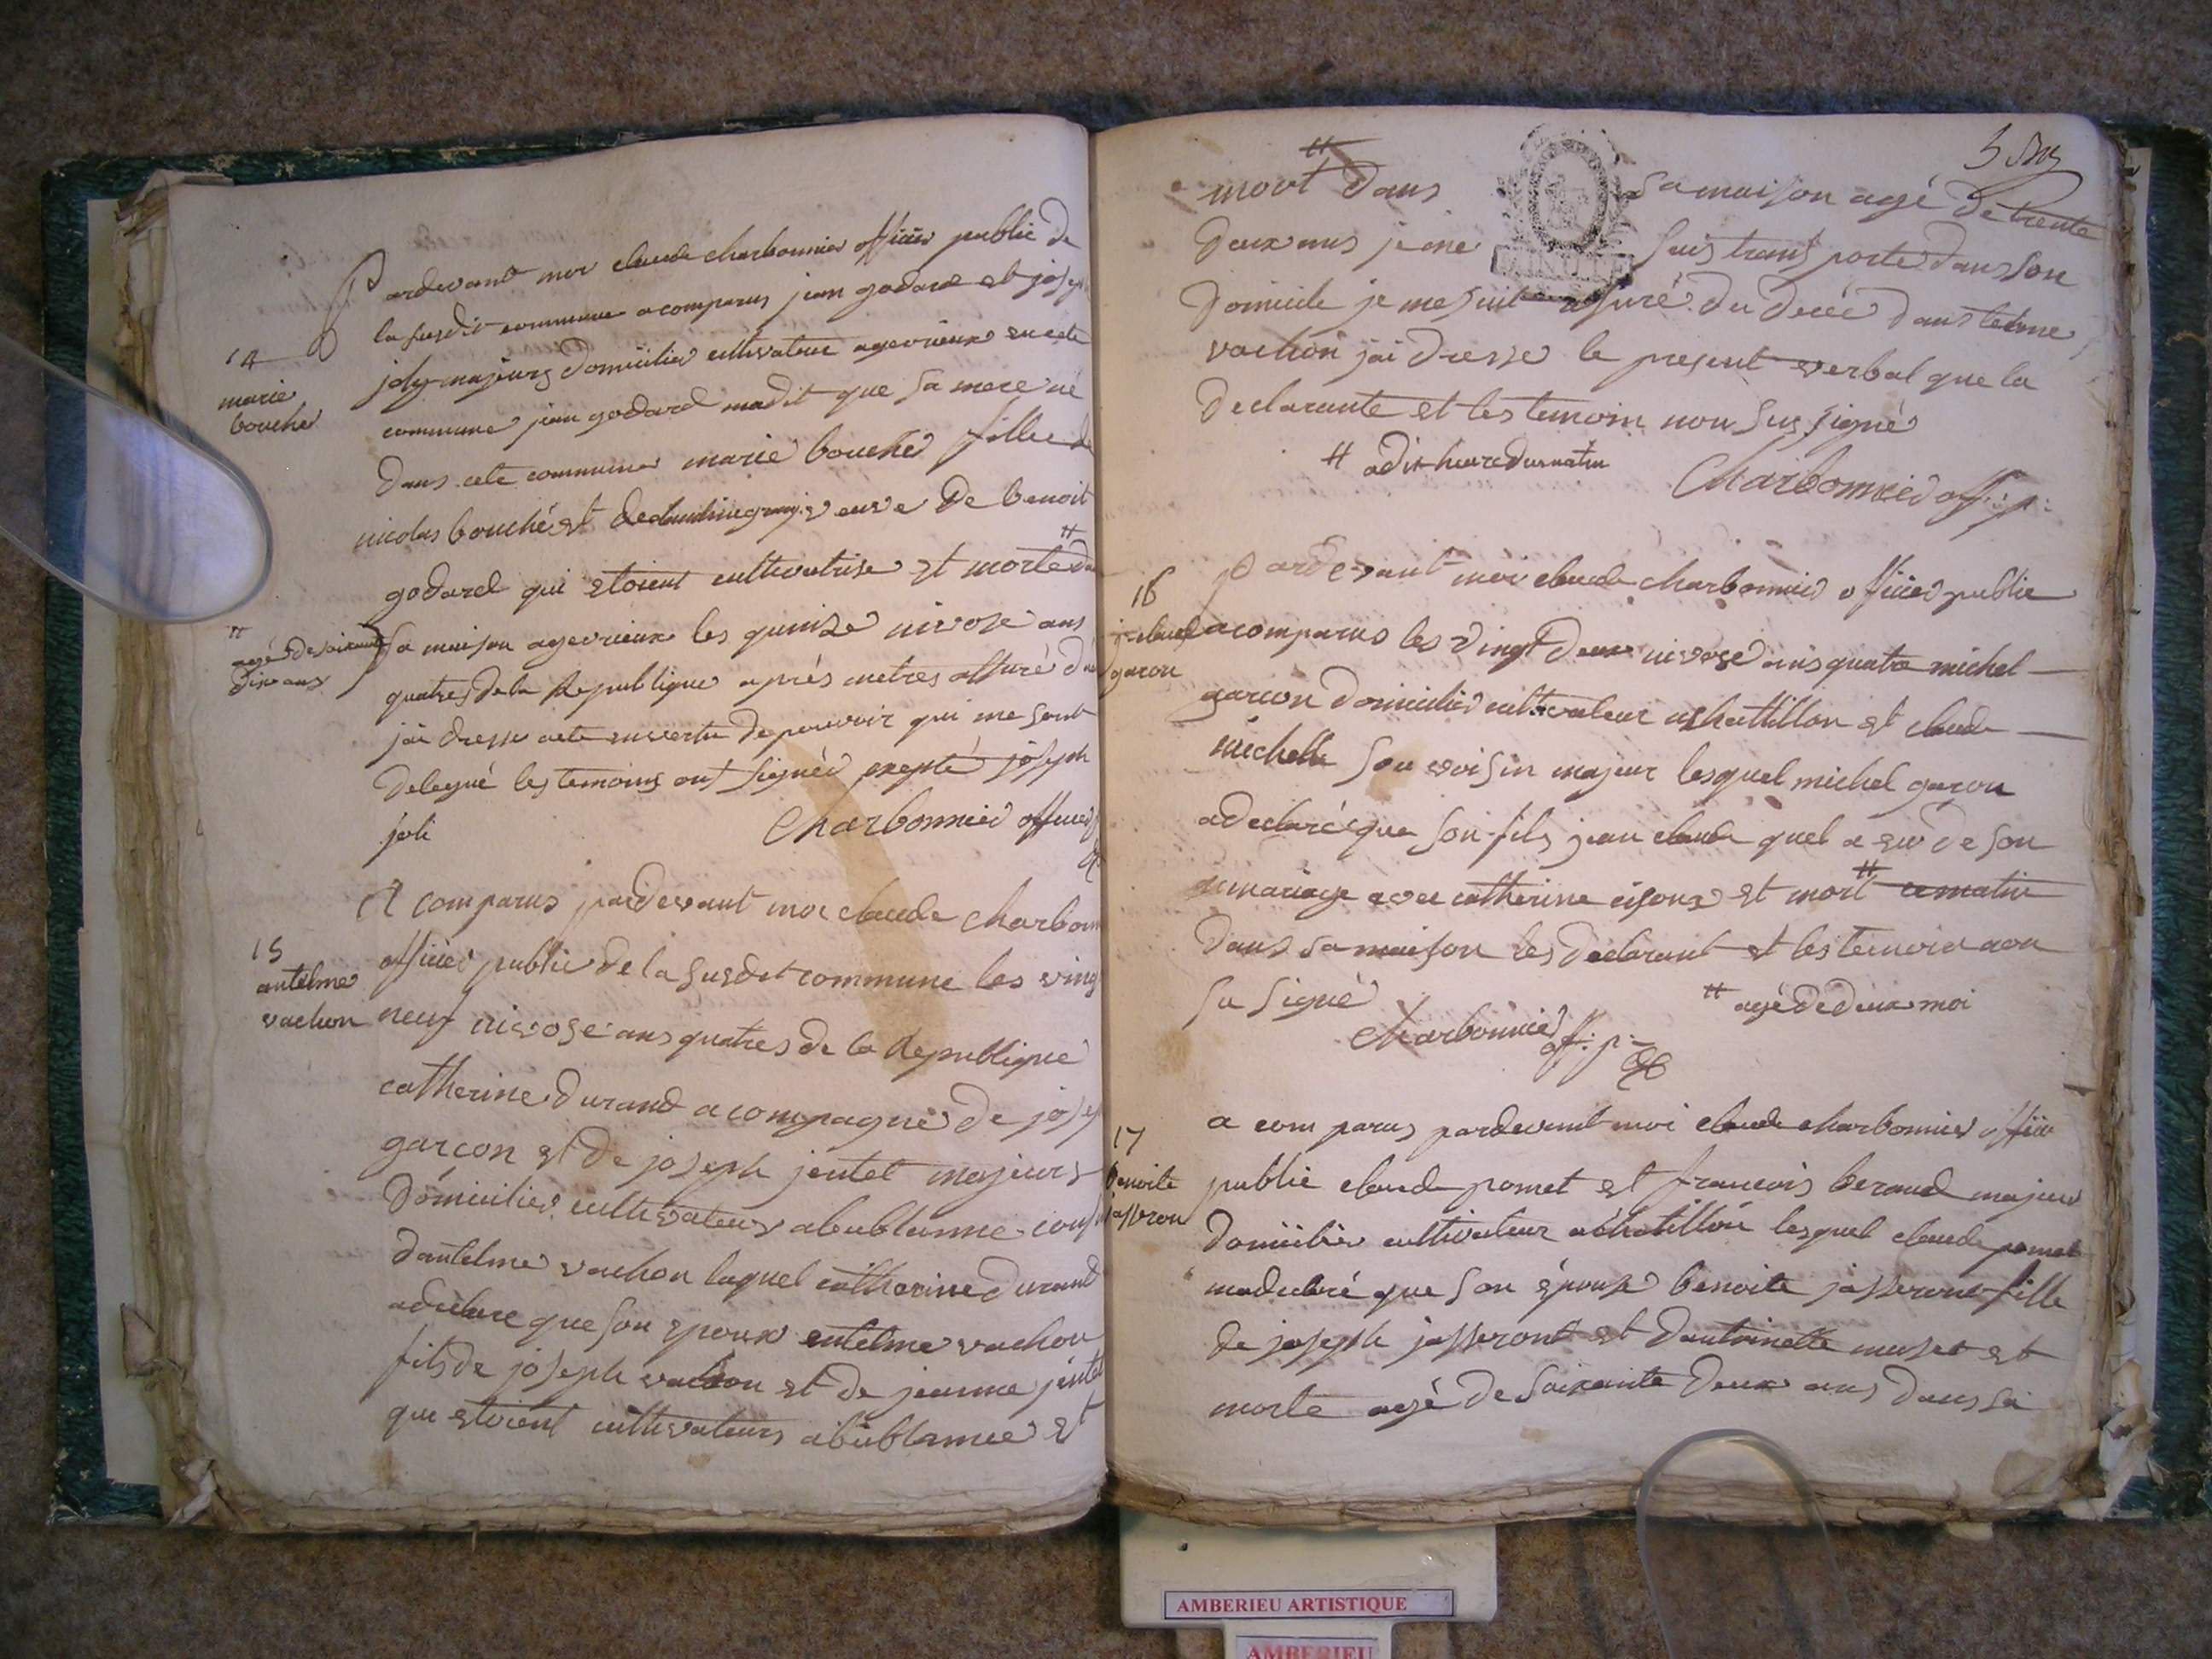 Pardevant moi claude charbonnier officier public de
la susdit commune a comparus jean godard et josep
14
marie
bouché
joly majeurs domicilier cultivateur agevrieux en cete
commune jean godard madit que sa mere né
dans cete commune marie bouché fille de
nicolas bouché et veuve De benoit
godard qui etoient cultivatrise et morte # da
# agé de soixante
dix ans
sa maison agevrieux les quinze nivose ans
quatres de la Republique aprés metres assuré du
jai dresse acte envertu de pouvoir qui me sont
delegué les temoins ont signéé exepté joseph
joli
Charbonnier officier p
A comparus pardevant moi claude charbon
15
antelme
vachon
officier public de la susdit commune les ving
neuf nivose ans quatres de la Republique
catherine durand acompagné de josep
garçon et de joseph jentet majeurs
Domicilier cultivateur abublanne
dantelme vachon laquel catherine durand
adeclare que son epoux entelme vachon
fils de joseph vachon et de jeanne jentet
qui etoient cultivateurs abublanne et
mort # Dans sa maison agé de trente
Deux ans je me suis transporte dans son
Domicile je me suit assuré du decée dantelme
vachon jai dresse le present verbal que la
Declarante et les temoin non sus signé
# a dix heure du matin
Charbonnier off. p.
16
j claude
garon
Pardevant moi claude charbonnier officier public
acomparus les vingt deux nivose ans quatre michel
garcon domicilier cultivateur achatillon et claude
michelle son voisin majeur lesquel michel garon
adeclaré que son fils jean claude quel a eu de son
mariage avec catherine et mort # ce matin
dans sa maison les declarant et les temoin non
su signé
# agé de deux moi
Charbonnier off. p.
17
benoite
jasseron
a comparus pardevant moi claude charbonnier officie
public claude pomet et francois beraud majeur
domicilier cultivateur achatillon lesquel claude pomet
madeclaré que son épouse benoite jasseront fille
de joseph jasseront et dantoinette muset et
morte agé de soixante deux ans dans sa
AMBERIEU ARTISTIQUE
AMBERIEU